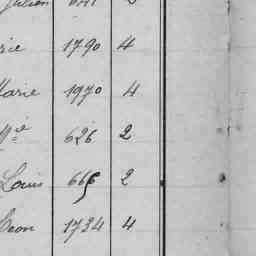 Julien 2
rie 1790 4
Marie 1970 4
Mie 626 2
Louis 2
Léon 1734 4